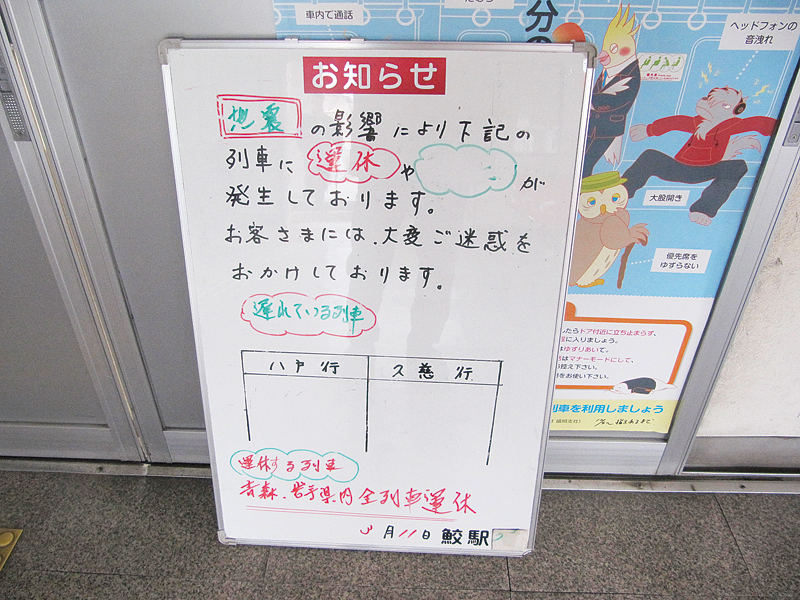 お知らせ
地震の影響により下記の
列車に運休や が
発生しております。
お客さまには、大変ご迷惑を
おかけしております。
遅れている列車
八戸行
久慈行
運休する列車
青森、岩手県内全列車運休
3月11日 鮫駅
車内で通話
ヘッドフォンの
音洩れ
大股開き
優先席を
ゆずらない
したらドア付近に立ち止まらず、
に入りましょう。
はゆずりあいで。
はマナーモードにして、
控え下さい。
をお使い下さい。
列車を利用しましょう